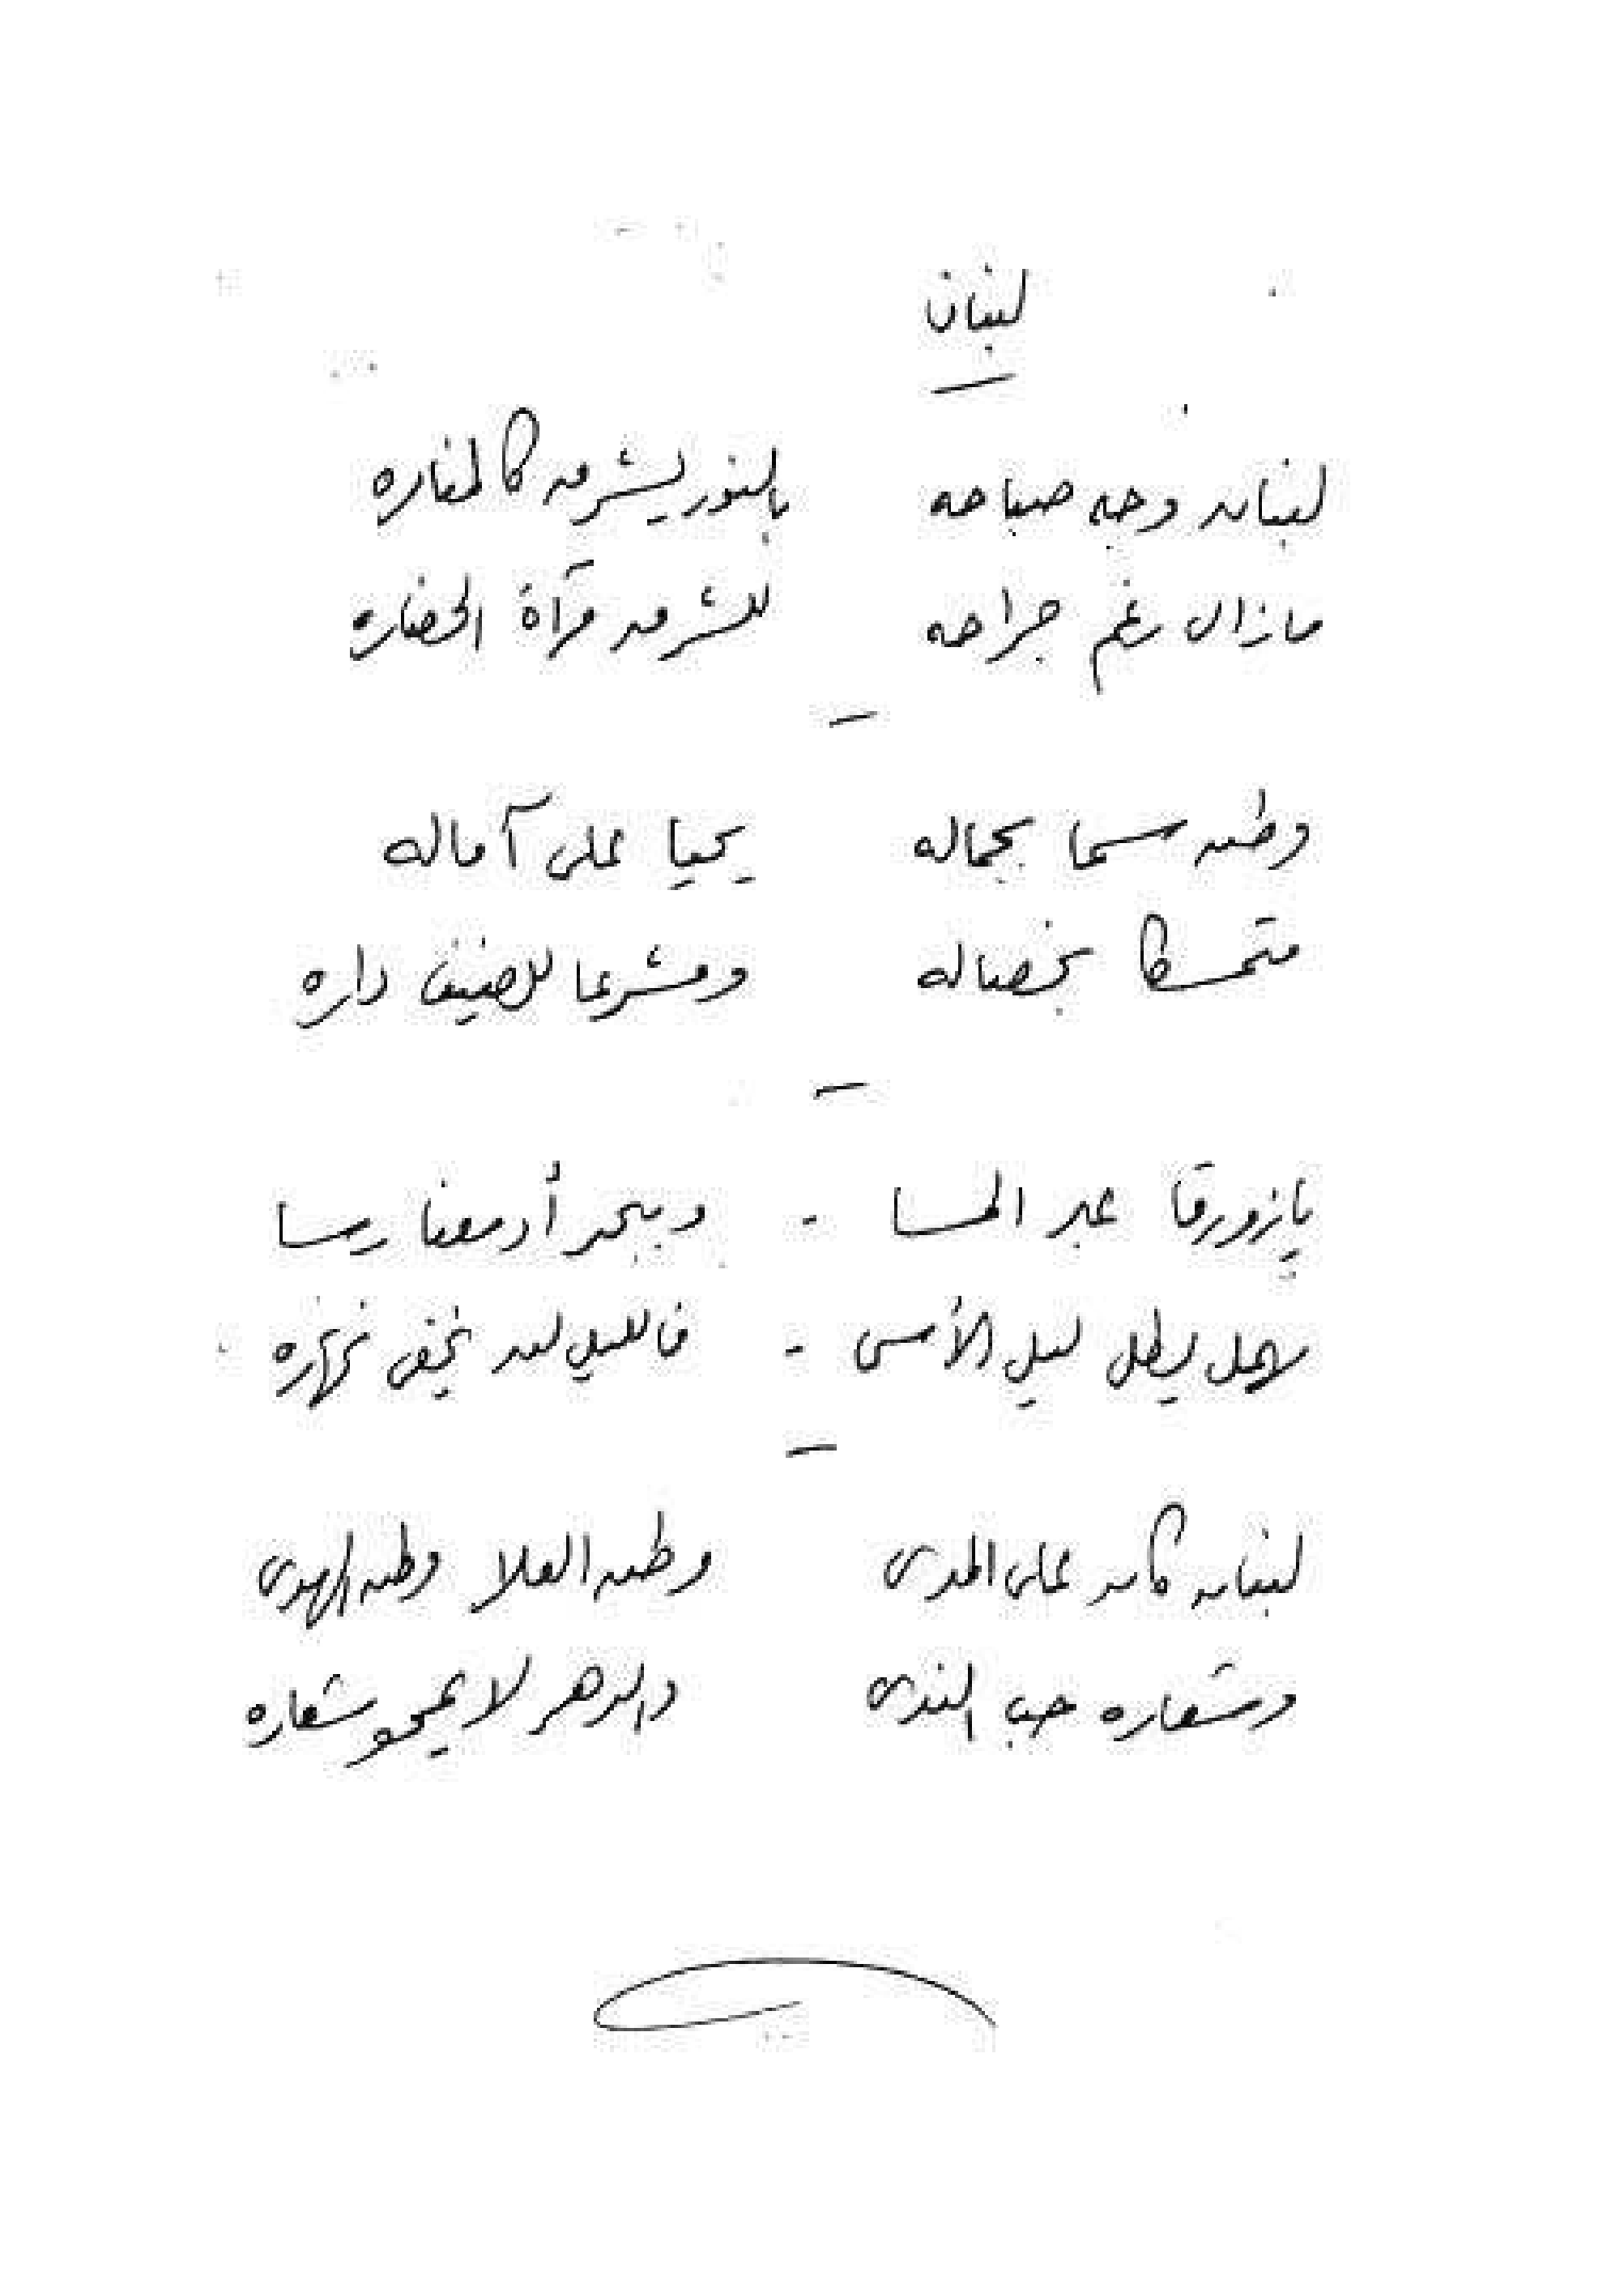 لبنان
لبنان وجه صباحه بالنور يشرق كالمناره
مازال رغم جراحه للشرق مرآة الحضاره
وطن سما بجماله يحيا على آماله
متمسكا بخصاله ومشرعا للضيف داره
يا زورقا عبر المسا - وببحر أدمعنا رسا
سهل يطل ليل الأسى - فالليل لن يخفى نهاره
لبنان كان على المدى وطن العلا وطن الهدى
وشعاره حب الندى والدهر لا يمحو شعاره